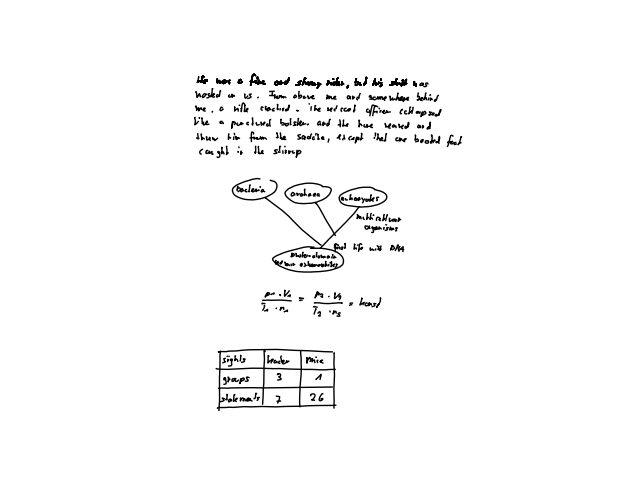 He was a fine and strong rider, but his skill was
wasted on us. From above me and somewhere behind
me, a rifle cracked. The redcoat officer collapsed
like a punctured bolster and the horse reared and
threw him from the saddle, except that one booted foot
caught in the stirrup
bacteria archaea eukaryotes
multicellular
organisms
first life with DNA
p₁ · V₁ / T₁ · n₁ = p₂ · V₂ / T₂ · n₂ = konst
sights leader price
groups 3 1
statements 7 26